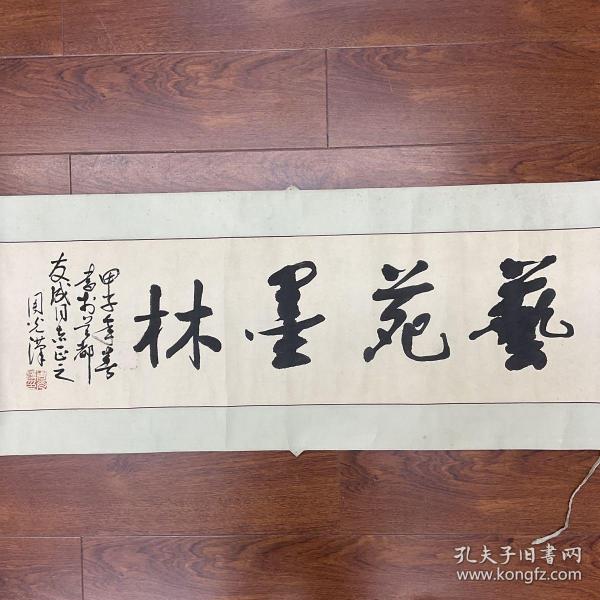 藝苑墨林
甲子年春
书于蓉都
友成同志正之
周光汉
孔夫子旧书网
www.kongfz.com